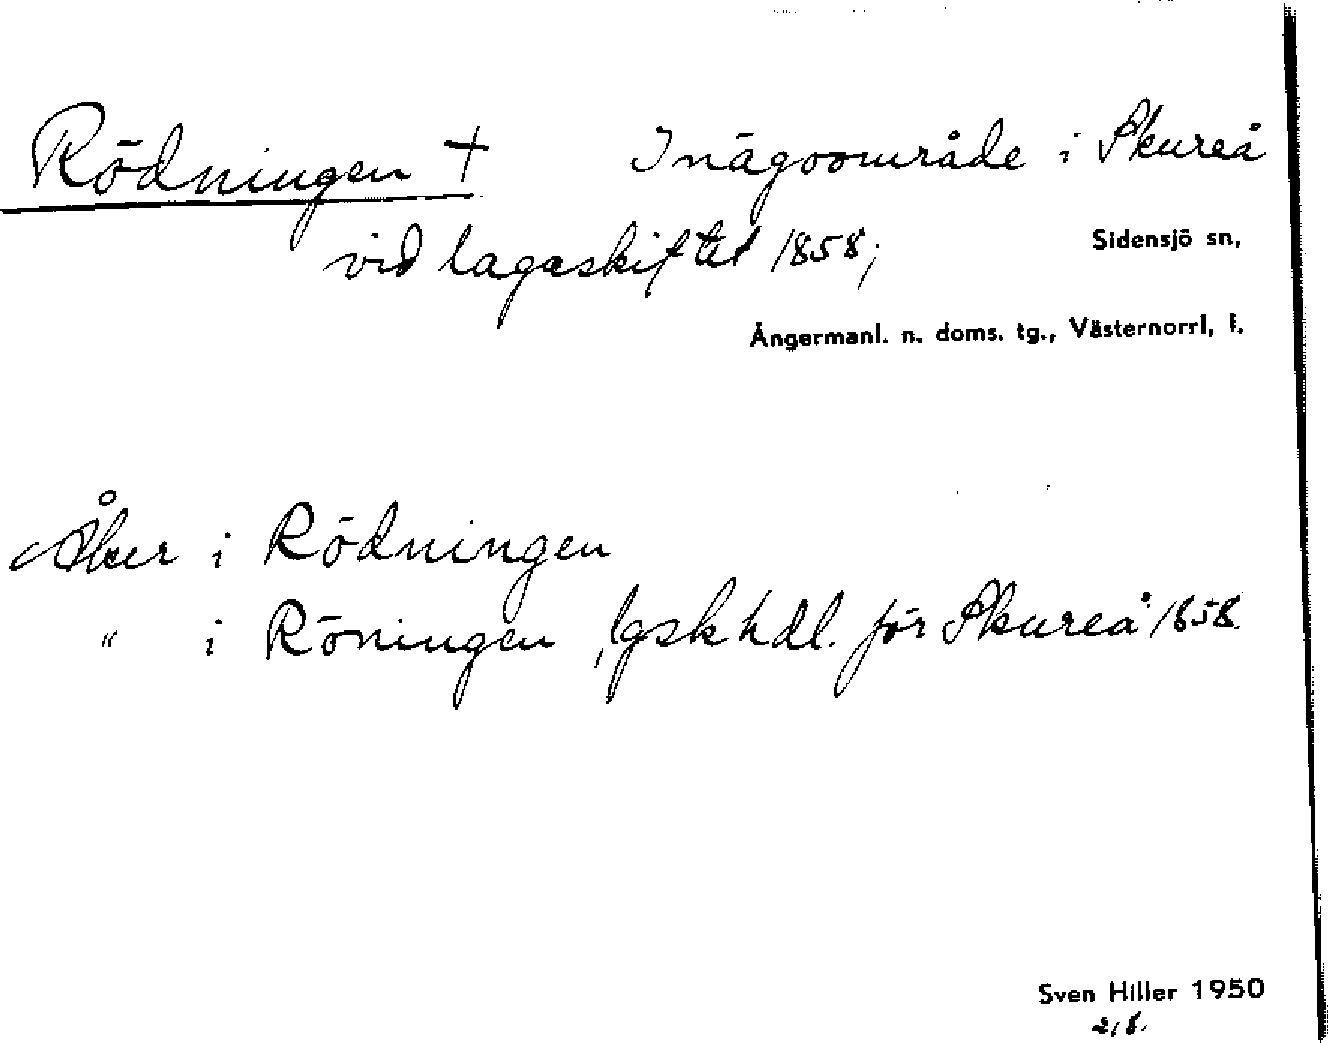 Rödningen + Inägoområde i Skureå
vid lagaskiftet 1858;
Sidensjö sn,
Ångermanl. n. doms. tg., Västernorrl, l.
Åker i Rödningen
" i Röningen, lgsk hdl. för Skureå 1858.
Sven Hiller 1950
2/8.